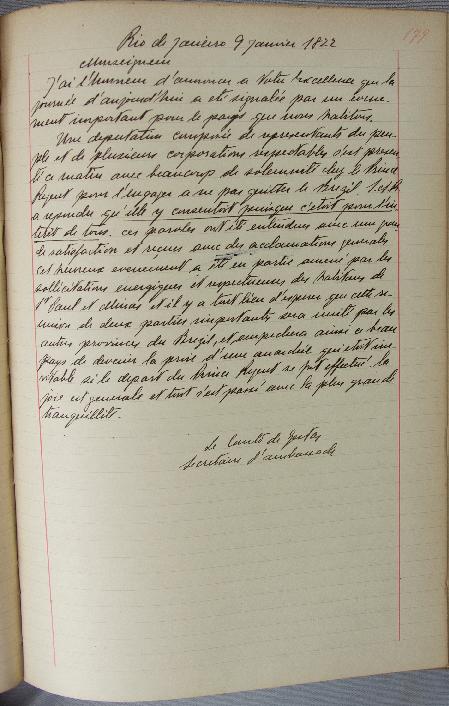 179
Rio de Janeiro 9 janvier 1822
Monseigneur
J'ai l'honneur d'annoncer a Votre Excellence que la
journée d'aujourd'hui a été signalée par un evene-
ment important pour le pays que nous habitons.
Une deputation composée de representants du peu-
ple et de plusieurs corporations respectables s'est presen-
té ce matin avec beaucoup de solemnité chez le Prince
Regent pour l'engager a ne pas quitter le Brezil. S.A.R.
a repondu qu'elle y consentoit puisque c'etoit pour l'in-
terêt de tous. ces paroles ont été entendues avec une joie
de satisfaction et recues avec des acclamations generales
cet heureux evenement a été en partie amené par les
sollicitations energiques et respectueuses des habitans de
St Paul et Minas et il y a tout lieu d'esperer que cette re-
union de deux parties importants sera imité par les
autres provinces du Brezil et empechera ainsi ce beau
pays de devenir la proie d'une anarchie qui etoit ine-
vitable si le depart du Prince Regent se fut effectué. la
joie est generale et tout s'est passé avec la plus grande
tranquillité.
Le Comte de Gestas
Secretaire d'ambassade